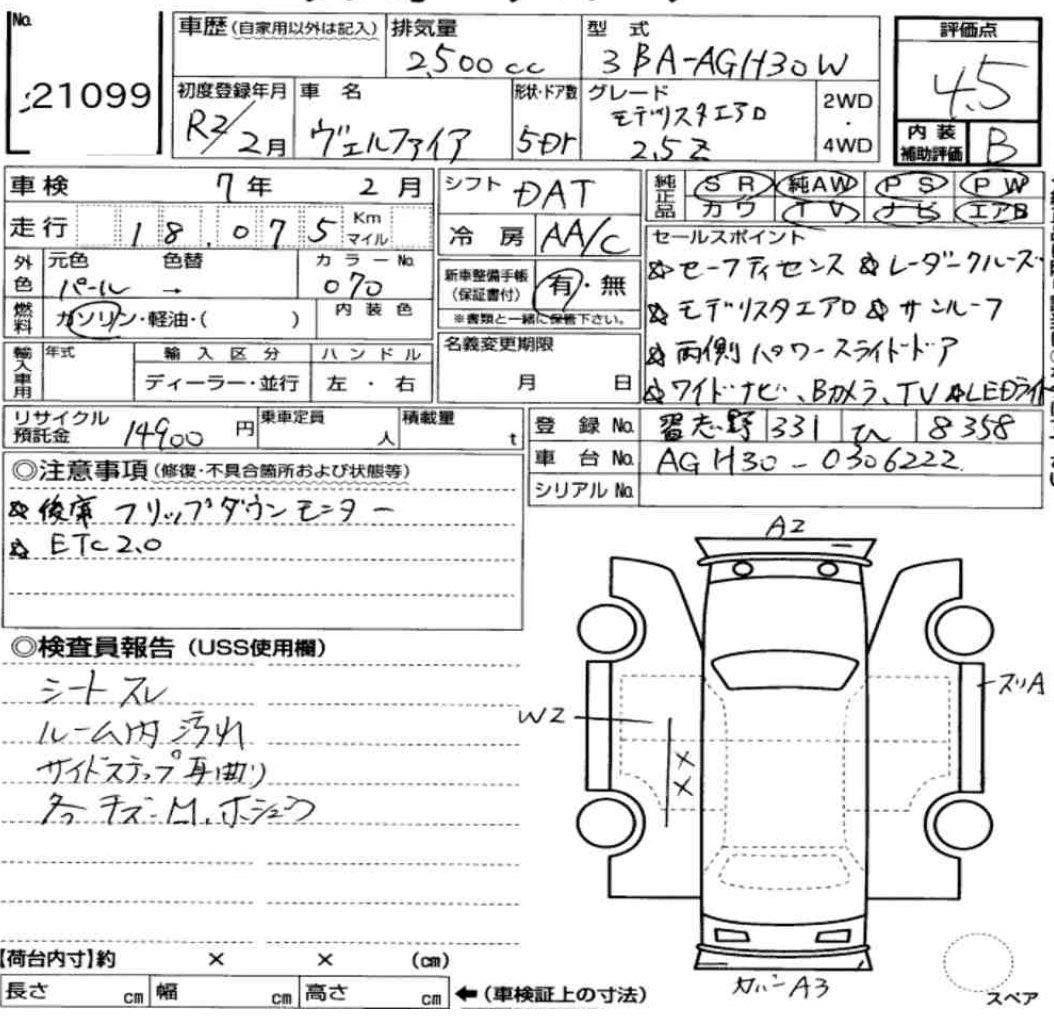 No. 21099
車歴(自家用以外は記入) 排気量 2,500cc 型式 3BA-AGH30W
初度登録年月 R2/2月 車名 ヴェルファイア 形状・ドア数 5Dr グレード モデリスタエアロ 2.5Z 2WD・4WD
評価点 4.5
内装補助評価 B
車検 7年 2月
走行 18,075 Km マイル
外色 元色 パール 色替 → カラーNo. 070
燃料 ガソリン・軽油・( ) 内装色
輸入車用 年式 輸入区分 ディーラー・並行 ハンドル 左・右
シフト DAT
冷房 AA/C
新車整備手帳(保証書付) 有・無
※書類と一緒に保管下さい。
名義変更期限 月 日
純正品 SR 純AW PS PW
カワ TV ナビ エアB
セールスポイント
☆セーフティセンス ☆レーダークルーズ
☆モデリスタエアロ ☆サンルーフ
☆両側パワースライドドア
☆ワイドナビ、Bカメラ、TV ☆LEDライト
リサイクル預託金 14900円 乗車定員 人 積載量 t
登録No. 習志野 331 ひ 8358
車台No. AGH30-0306222
シリアルNo.
◎注意事項(修復・不具合箇所および状態等)
☆後席フリップダウンモニター
☆ETC2.0
◎検査員報告(USS使用欄)
シートスレ
ルーム内汚れ
サイドステップ耳曲り
A2
W2
××
スリA
ガハンA3
スペア
【荷台内寸】約 × × (cm)
長さ cm 幅 cm 高さ cm ←(車検証上の寸法)